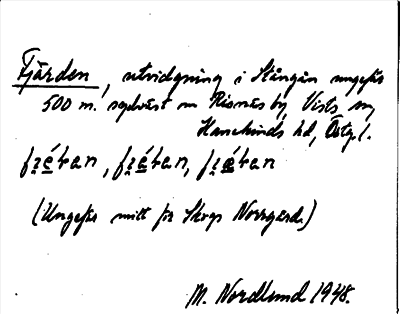 Fjärden, utvidgning i Stångån ungefär
500 m. sydväst om Risnäs by, Vists sn,
Hanekinds hd, Östg.l.
(Ungefär mitt för Skogs Norrgård.)
M. Nordlund 1948.